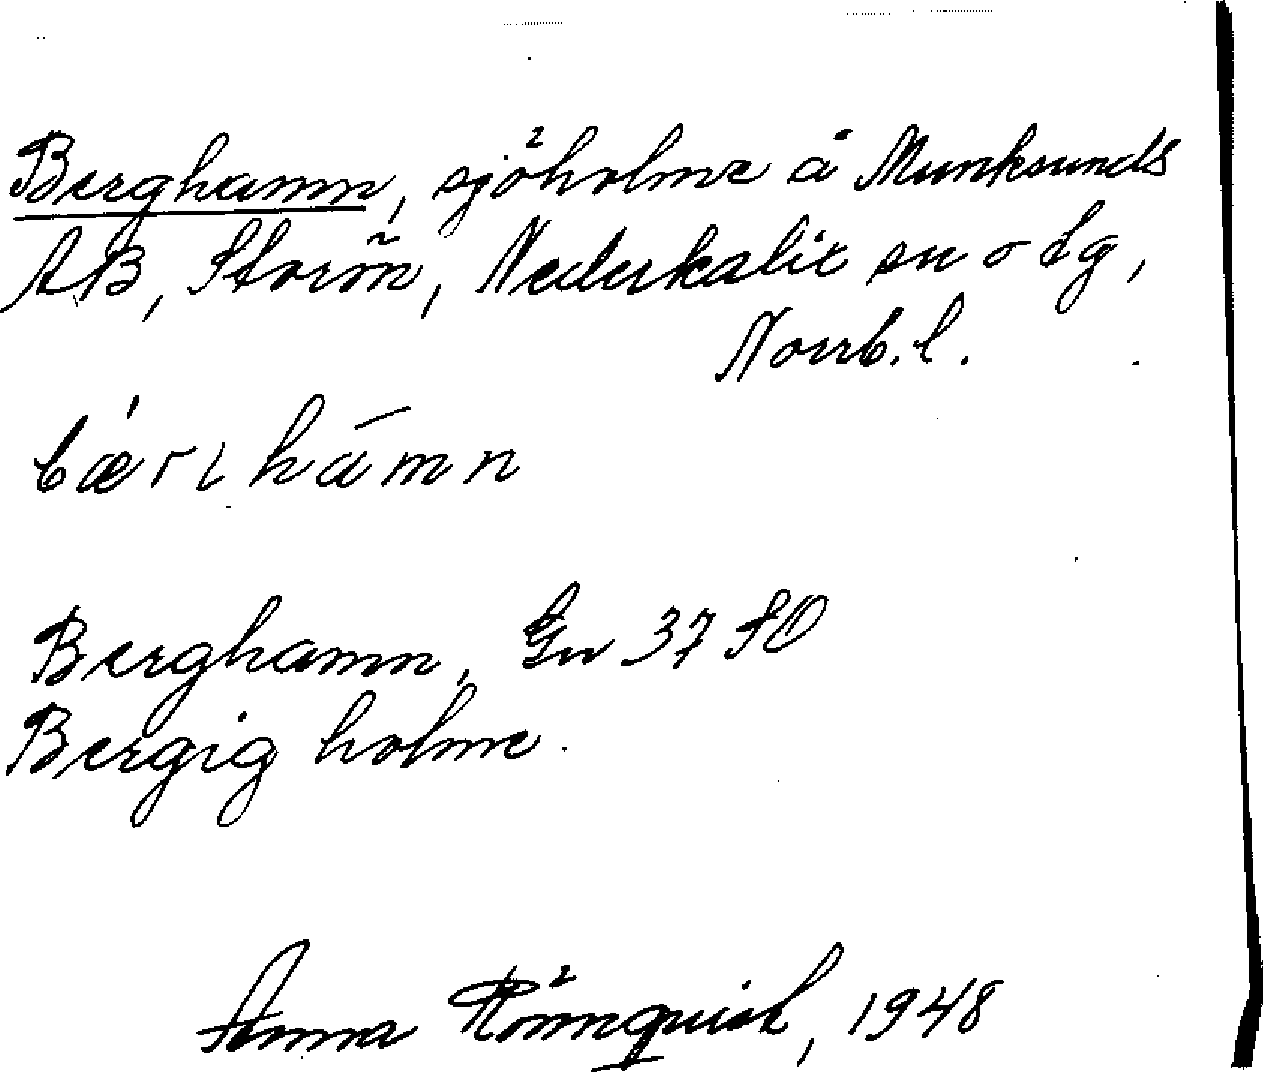 Berghamn, sjöholme å Munksunds
AB, Storön, Nederkalix sn o tg,
Norrb. l.
bærɩhamn
Berghamn, Gn 37 SO
Bergig holme.
Anna Rönnquist, 1948